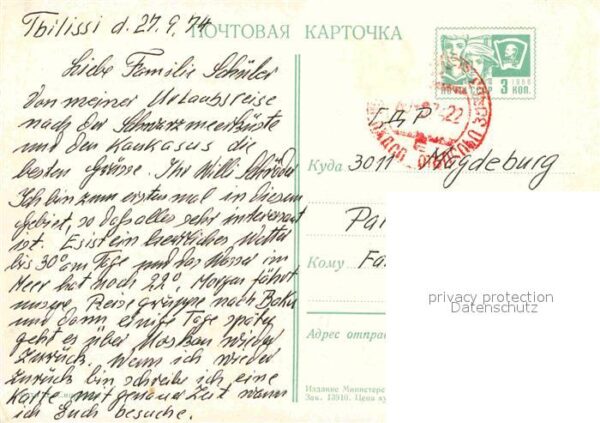 Tbilissi d. 27.9.74
ПОЧТОВАЯ КАРТОЧКА
Liebe Familie Schüler
Von meiner Urlaubsreise
nach der Schwarzmeerküste
und den Kaukasus die
besten Grüsse. Ihr Willi Schröder
Ich bin zum ersten mal in diesem
Gebiet, so daß alles sehr interesant
ist. Es ist ein herrliches Wetter
bis 30° am Tage und das Wasser im
Meer hat noch 22°, Morgen fährt
unsere Reisegruppe nach Baku
und dann einige Tage später
geht es über Moskau wieder
zurück. Wenn ich wieder
zurück bin schreibe ich eine
Karte mit genauer Zeit wann
ich Euch besuche.
1966
ПОЧТА СССР
3 КОП.
ГДР
Куда 3011 Magdeburg
Кому
Адрес отправ
privacy protection
Datenschutz
Издание Министерс
Зак. 13910. Цена